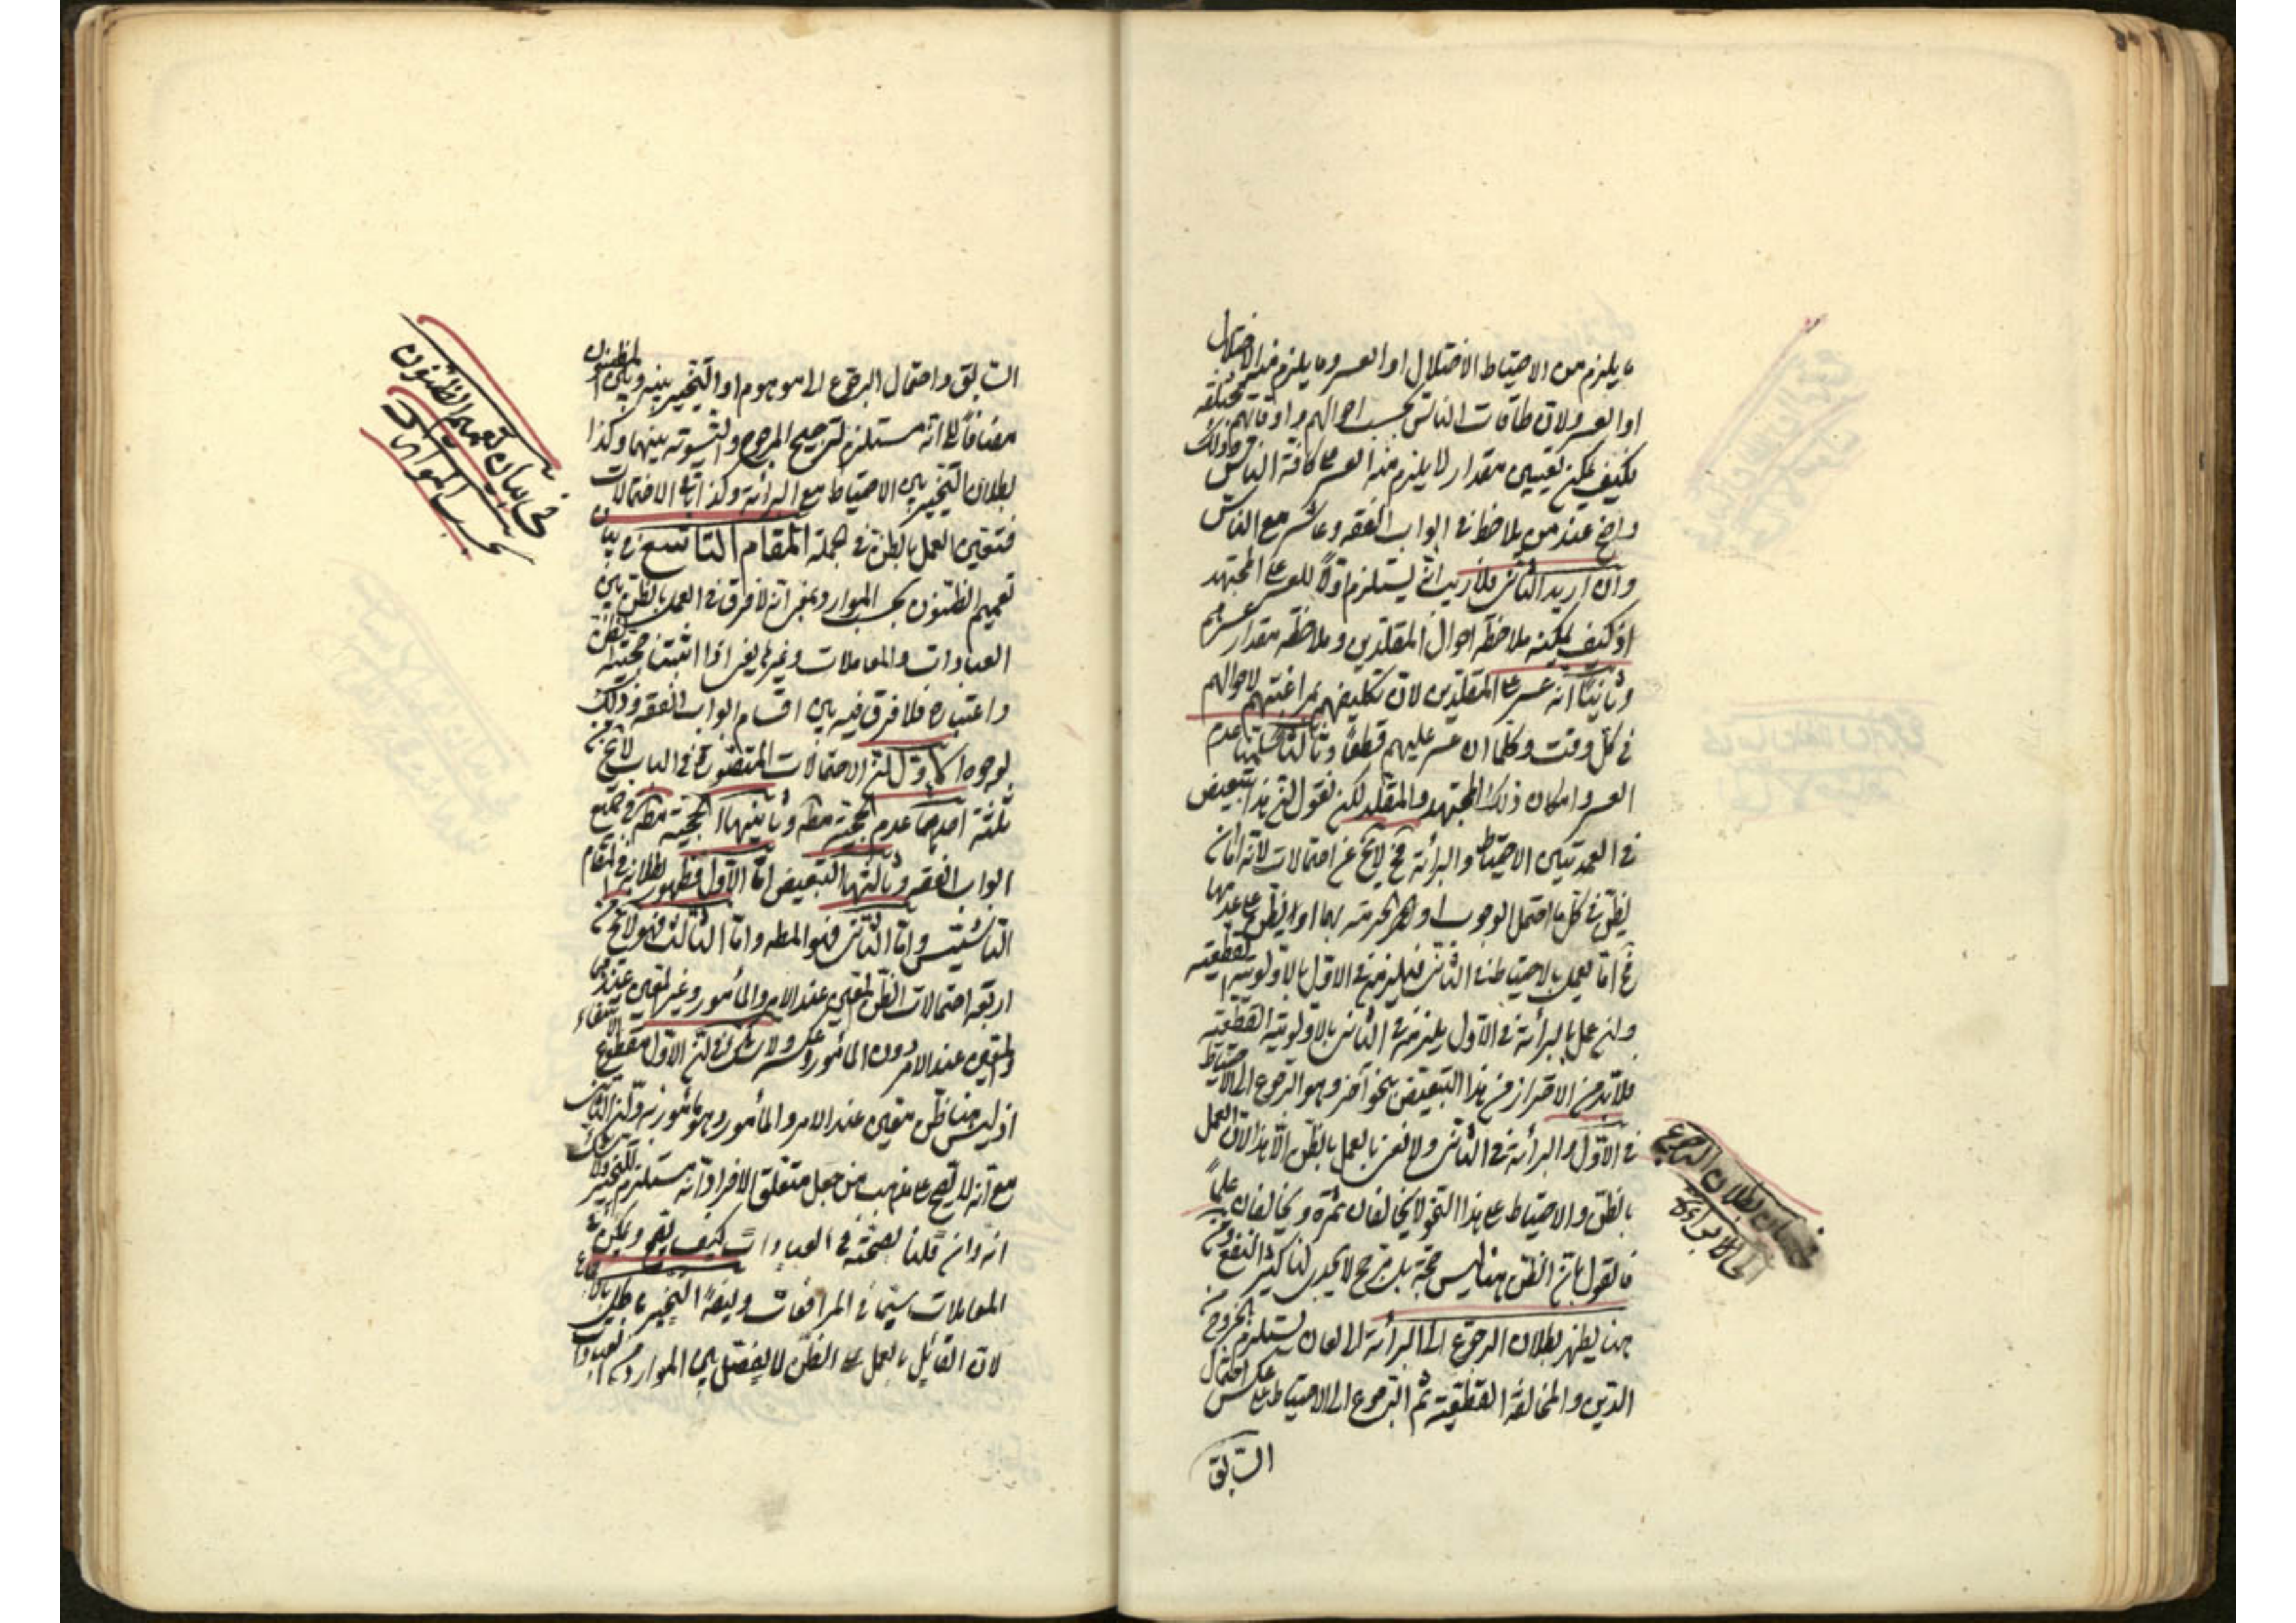 ما يلزم من الاحتياط الاختلال او العسر وما يلزم منه الاختلال
او العسر ولان طاقات الناس بحسب احوالهم واوقاتهم مختلفة
فكيف يمكن تعيين مقدار لا يلزم منه العسر على كافة الناس وذلك
واضح عند من يلاحظ في ابواب الفقه وعاشر مع الناس
وان اريد الثاني فلا ريب انه يستلزم اولا للعسر على المجتهد
اذ كيف يمكنه ملاحظة احوال المقلدين وملاحظة مقدار عسرهم
وثانيا انه عسر على المقلدين لان تكليفهم بمراعتهم لاحوالهم
في كل وقت وكلما ان عسر عليهم قطعا وثالثا سلمنا عدم
العسر وامكان ذلك للمجتهد والمقلد لكن نقول ان هذا التبعيض
في العمد بين الاحتياط والبرائة فح لا يخ عن احتمالات لانه اما ان
يظن في كل ما احتمل الوجوب او الحرمة بهما او يظن على عدمها
فح اما يعمل بالاحتياط في الثاني فيلزم في الاول بالاولوية القطعية
وان عمل بالبرائة في الاول يلزمه في الثاني بالاولوية القطعية
فلا بد من الاحتراز من هذا التبعيض بنحو آخر وهو الرجوع الى الاحتياط
في الاول والبرائة في الثاني ولا نعنى بالعمل بالظن الا هذا لان العمل
بالظن والاحتياط على هذا النحو لا يخالفان ثمرة ويخالفان علما
فالقول بان الظن هنا ليس حجة بل مرجح لا يجدى لنا كثير النفع ومن
هنا يظهر بطلان الرجوع الى البرائة اذ العمل يستلزم الخروج من
الدين والمخالفة القطعية ثم الرجوع الى الاحتياط على عكس احتمال
السابق
في بيان بطلان الرجوع
السابق واحتمال الرجوع الى الموهوم او التخيير بينه وبين المظنون
مضافا الى انه مستلزم لترجيح المرجوح والتسوية بينهما وكذا
بطلان التخيير بين الاحتياط مع البرائة وكذا باقي الاحتمالات
فتعين العمل بالظن في الجملة المقام التاسع في بيان
تعميم الظنون بحسب الموارد بمعنى انه لا فرق في العمل بالظن بين
العبادات والمعاملات وغيرها يعنى اذا اثبتنا حجية الظن
واعتباره فلا فرق فيه بين اقسام ابواب الفقه وذلك
لوجوه الاول ان الاحتمالات المتصورة في الباب لا يخ من
ثلثة احدها عدم الحجية مطه وثانيتها الحجية مطه في جميع
ابواب الفقه وثالثتها التبعيض اما الاول فظهور بطلانه في المقام
الثامن واما الثاني فهو المطه واما الثالث فهو لا يخ من
اربعة احتمالات الظن المعين عند الامر والمأمور وغير المعين عندهما
والمعين عند الامر دون المأمور وعكسه ولا شك في ان الاول مقطوع الانتفاء
اذ ليس هنا ظن معين عند الامر والمأمور وهو مأمور به وان الثاني
مع انه لا يصح على مذهب من جعل متعلق الافراد انه مستلزم للتخيير ولا شك
انه وان قلنا بصحته في العبادات كيف يصح ويمكن في
المعاملات سيما في المرافعات وايضا التخيير باطل بالاجماع
لان القائل بالعمل على الظن لا يفصل بين الموارد من العبادات
في بيان تعميم الظنون
بحسب الموارد